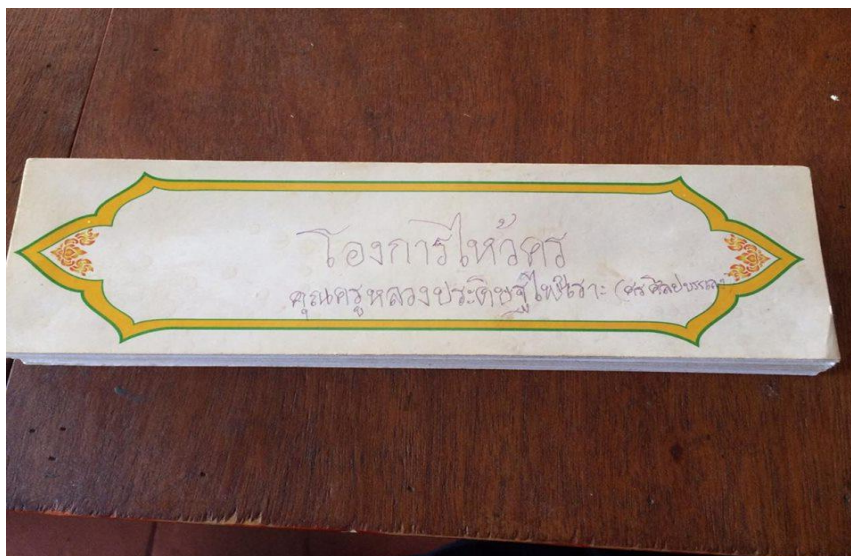 โองการไหว้ครู
คุณครูหลวงประดิษฐ์ไพเราะ (ศร ศิลปบรรเลง)